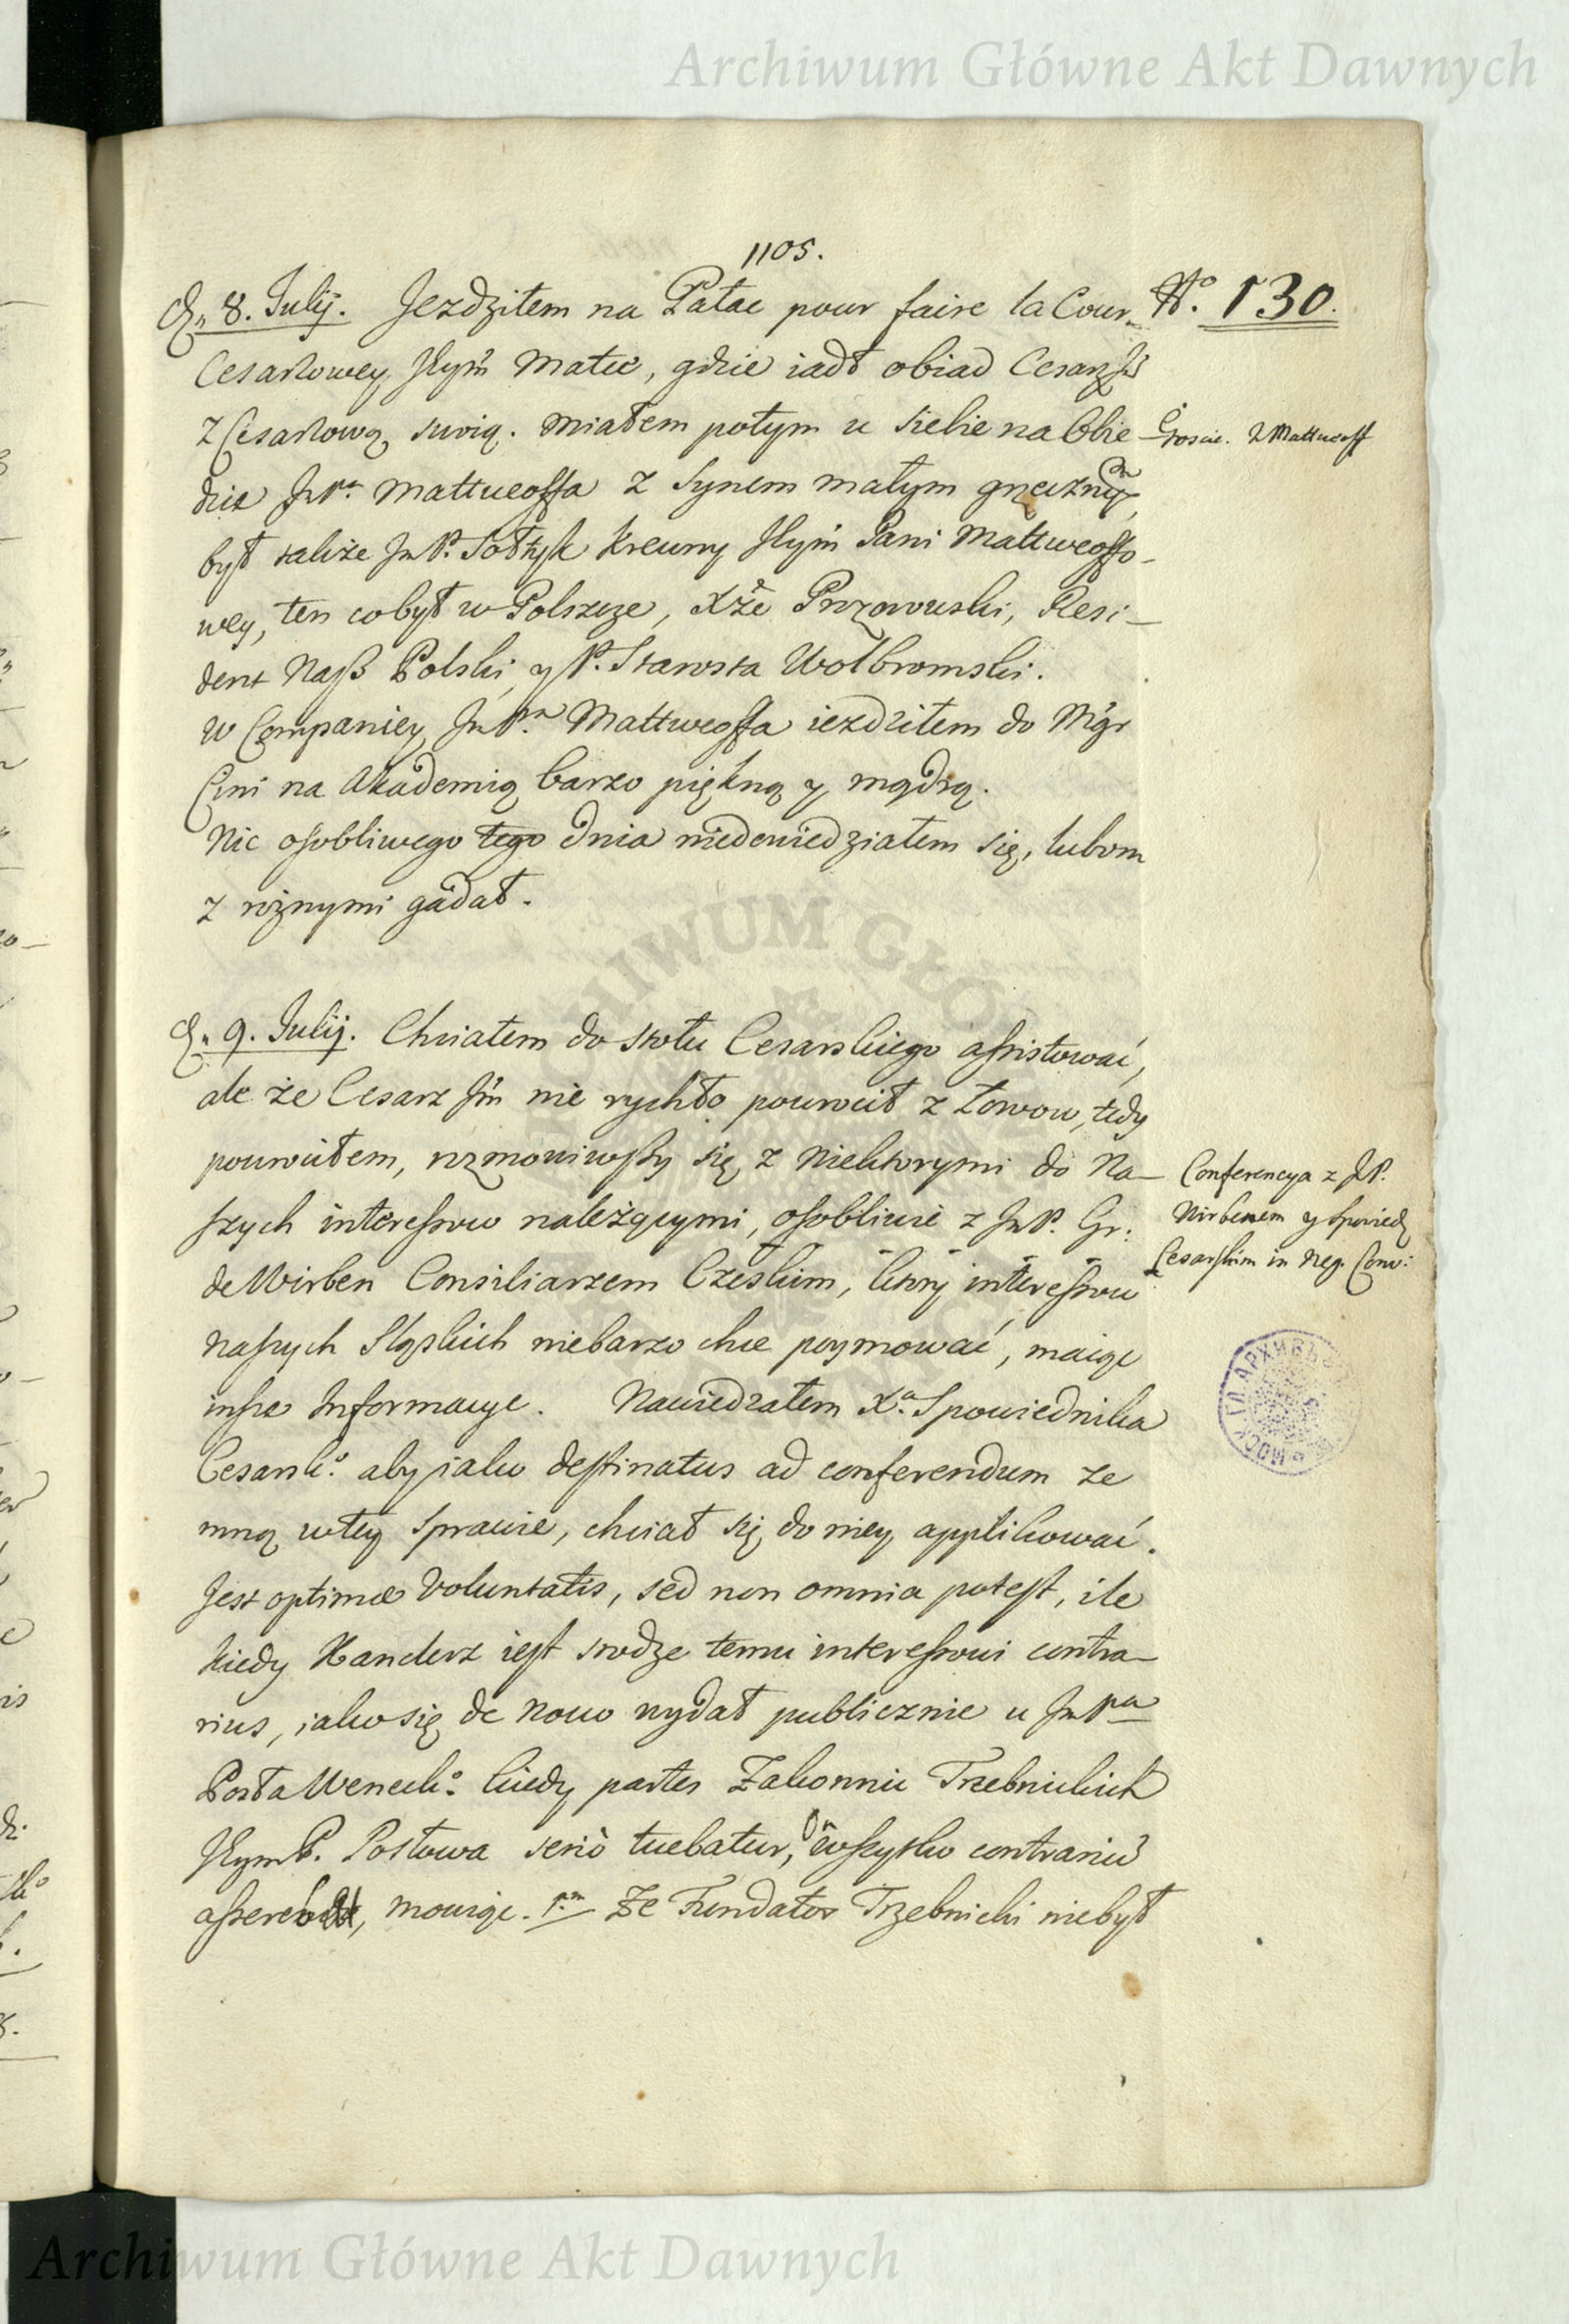 Archiwum Główne Akt Dawnych
1105.
D. 8. Julij. Jezdziłem na Pałac pour faire la Cour N.º 130.
Cesarzowey Jeym Matce, gdzie iadł obiad Cesarz Jm
z Cesarzową swoią. Miałem potym u siebie na Obie-
Goscie. I Mattweoff
dzie JmPa. Mattweoffa z Synem małym grzecznym,
był takze JmP. Sołtyk krewny Jeym Pani Mattweoffo-
wey, ten co był w Polszcze, Xże Prozorowski, Resi-
dent Nasz Polski, y P. Starosta Wolbromski.
W Compániey JmPa. Mattweoffa iezdziłem do Mgr
Cini na Akademią barzo piękną y mądrą.
Nic osobliwego tego dnia niedowiedziałem się, lubom
z roznymi gadał.
D. 9. Julij. Chciałem do stołu Cesarskiego assistować,
ale że Cesarz Jm nie rychło powrócił z Łowow, tedy
powrociłem, rozmowiwszy się z niektorymi do Na-
szych interessow należącymi, osobliwie z JmP. Gr:
Conferencya z JP.
Wirbenem y spowied
Cesarskim in neg. Conv:
de Wirben Consiliarzem Czeskim, ktory interessow
naszych Sląskich niebarzo chce poymować, maiąc
insze Informacye. Nawiedzałem Xa. Spowiednika
Cesarskº. aby iako destinatus ad conferendum ze
mną w tey sprawie, chciał się do niey applikować.
Jest optimæ Voluntatis, sed non omnia potest, ile
kiedy Kanclerz iest srodze temu interessowi contra-
rius, iako się de novo wydał publicznie u JmPa
Posła Weneckº. kiedy partes Zakonnic Trzebnickich
JeymP. Posłowa seriò tuebatur, On wszystko contrariũ
asserebat, mowiąc. 1mo Ze Fundator Trzebnicki niebył
Archiwum Główne Akt Dawnych